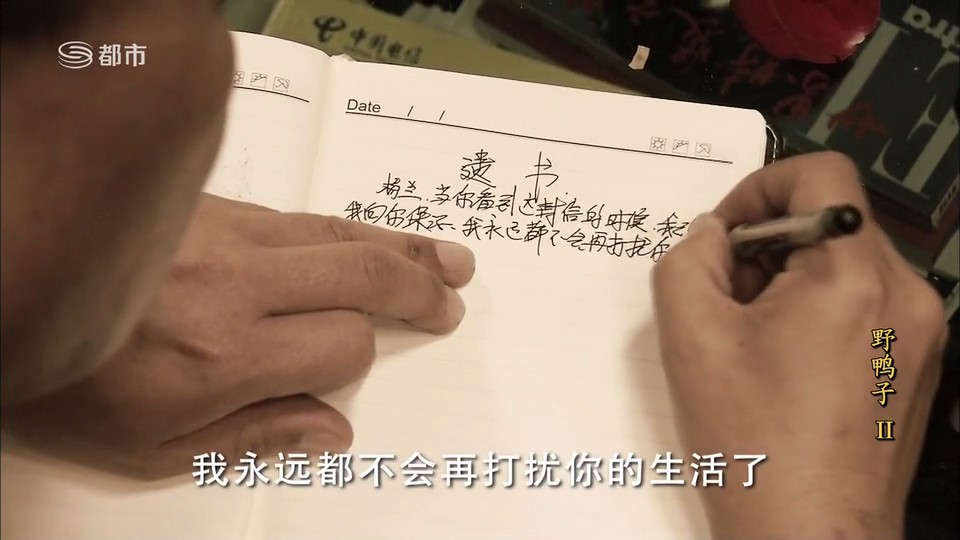 都市
中国电信
Date / /
遗书
杨兰.当你看到这封信的时候.我
我向你保证.我永远都不会再打扰你
野鸭子 II
我永远都不会再打扰你的生活了